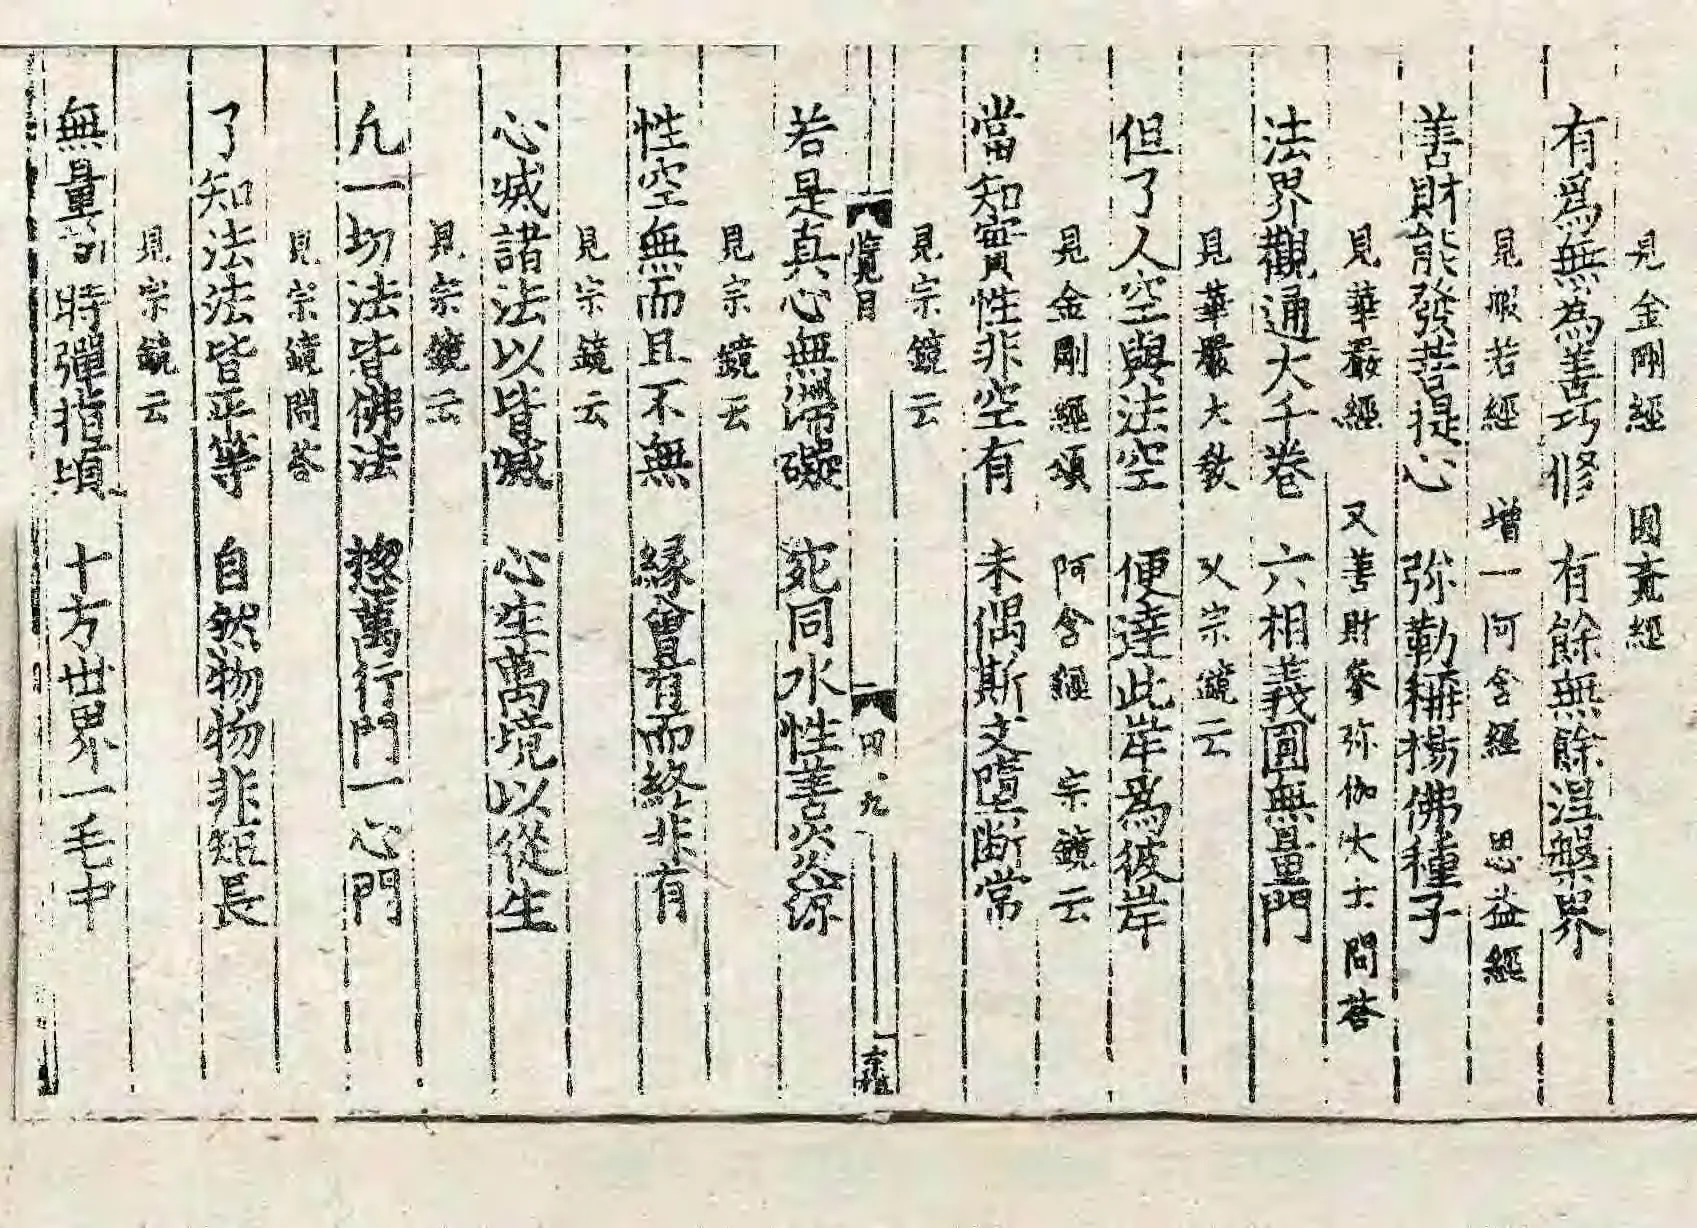 見金剛經　圓覺經
有爲無為善巧修　有餘無餘涅槃界
見般若經　增一阿含經　思益經
善財能發菩提心　弥勒稱揚佛種子
見華嚴經　又善財參弥伽大士問答
法界觀通大千卷　六相義圓無量門
見華嚴大教　又宗鏡云
但了人空與法空　便達此岸爲彼岸
見金剛經頌　阿含經　宗鏡云
當知實性非空有　未偶斯文墮断常
見宗鏡云
覧目　四　九
若是真心無滯礙　宛同水性善炎凉
見宗鏡云
性空無而且不無　緣會有而終非有
見宗鏡云
心滅諸法以皆滅　心生萬境以從生
見宗鏡云
凡一切法皆佛法　揔萬行門一心門
見宗鏡問答
了知法法皆平等　自然物物非短長
見宗鏡云
無量劫時彈指頃　十方世界一毛中